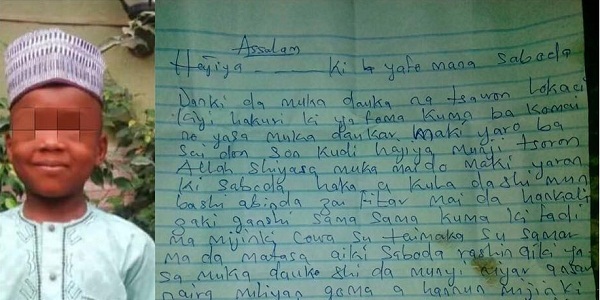 Assalam
Hajiya ki yafe mana saboda
Danki da muka dauka na tsawon lokaci
kiyi hakuri ki yafema kuma ba komai
ne yasa muka daukar maki yaro ba
Sai don son kudi hajiya munji tsoron
Allah shiyasa muka maido maki yaran
ki saboda haka a kula dashi mun
bashi abinda zai fitar mai da hankali
gaki ganshi sama sama kuma ki fadi
ma mijinki Cewa su taimaka su samar
ma da matasa aiki Saboda rashin aiki ya
sa muka dauke shi da munyi niyar
naira miliyan goma a hannun mijinki